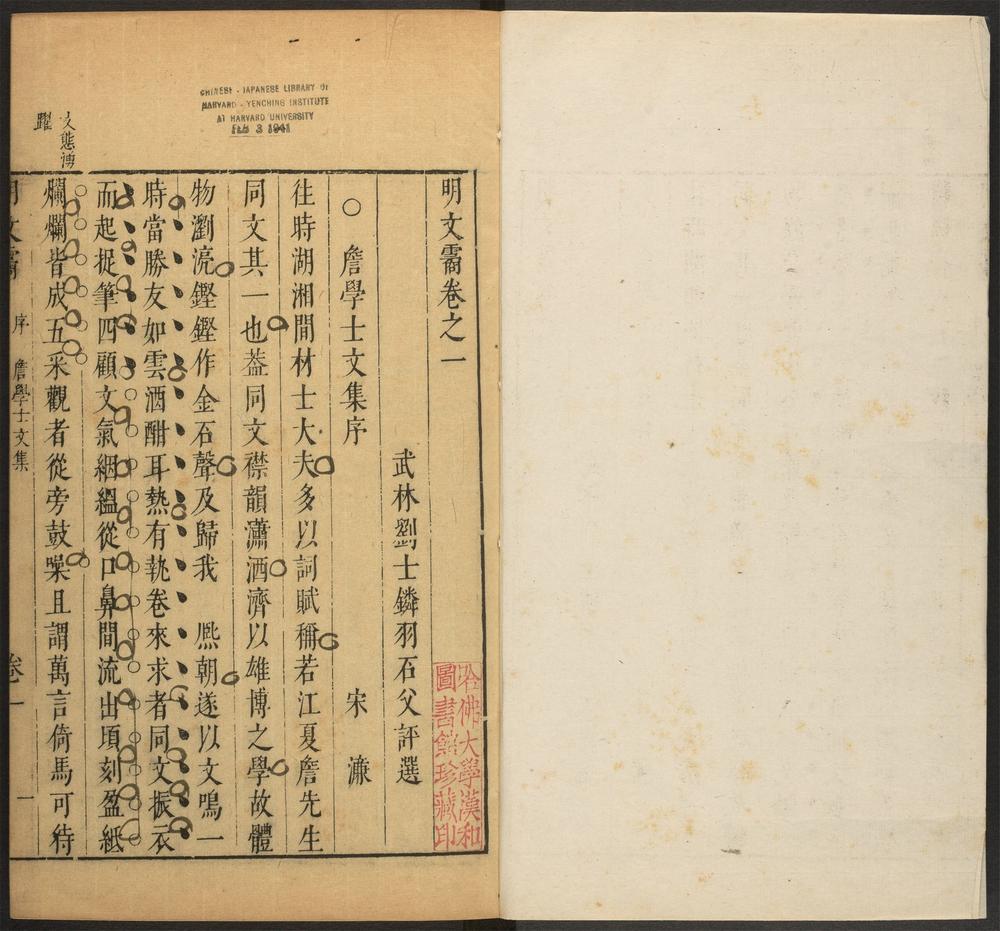 明文霱卷之一
武林劉士鏻羽石父評選
○　詹學士文集序　宋　濂
往時湖湘間材士大夫多以詞賦稱若江夏詹先生
同文其一也葢同文襟韻瀟洒濟以雄博之學故體
物瀏浣鏗鏗作金石聲及歸我　熈朝遂以文鳴一
時當勝友如雲酒酣耳熱有執卷來求者同文振衣
而起捉筆四顧文氣絪縕從口鼻間流出頃刻盈紙
爛爛皆成五采觀者從旁鼓噪且謂萬言倚馬可待
文態博
躍
明文霱　序　詹學士文集　卷一　一
哈佛大學漢和
圖書館珍藏印
CHINESE - JAPANESE LIBRARY OF
HARVARD - YENCHING INSTITUTE
AT HARVARD UNIVERSITY
FEB 3 1941